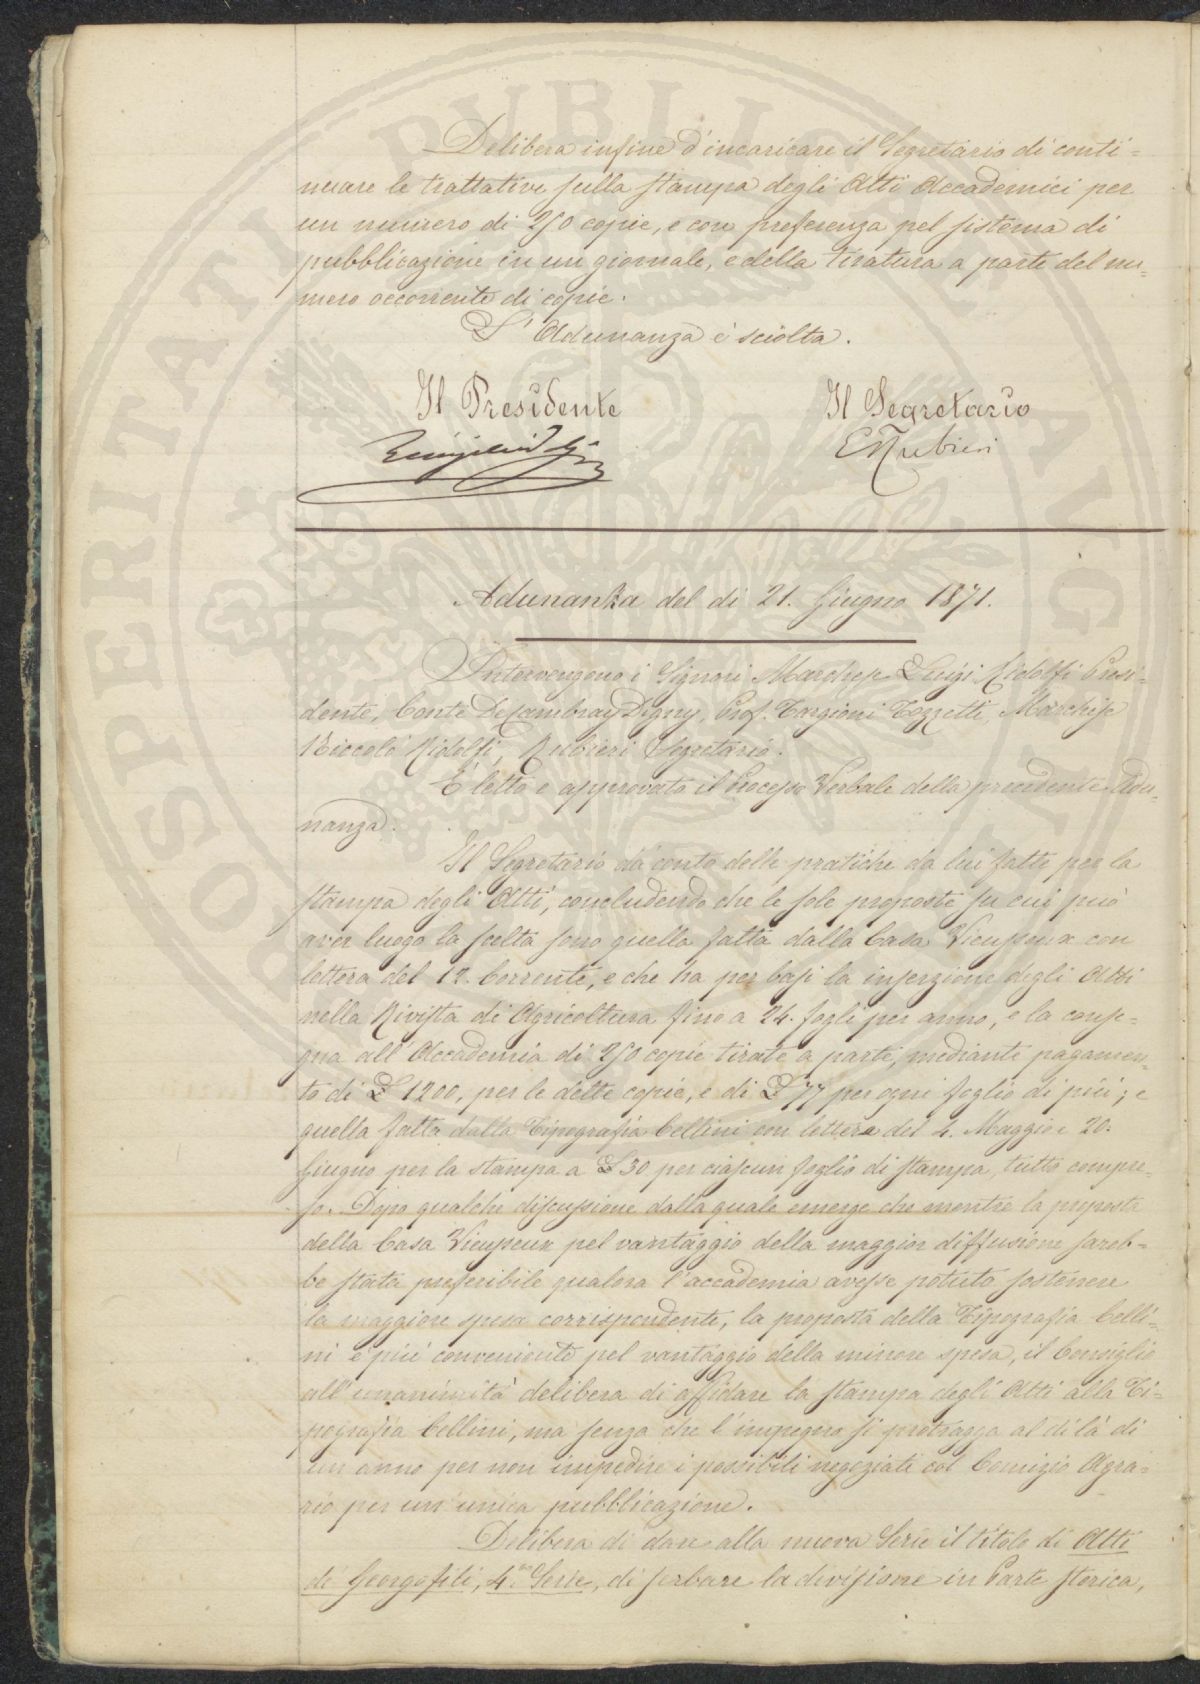 Delibera infine d'incaricare il Segretario di conti=
nuare le trattative sulla stampa degli Atti Accademici per
un numero di 250 copie, e con preferenza pel sistema di
pubblicazione in un giornale, e della tiratura a parte del nu=
mero occorrente di copie.
L'Adunanza è sciolta.
Il Presidente
Il Segretario
L Ridolfi
E Rubieri
Adunanza del dì 21. Giugno 1871.
Intervengono i Signori Marchese Luigi Ridolfi Presi=
dente, Conte De Cambray Digny, Prof. Targioni Tozzetti, Marchese
Niccolò Ridolfi, Rubieri Segretario.
È letto e approvato il Processo Verbale della precedente Adu=
nanza.
Il Segretario dà conto delle pratiche da lui fatte per la
stampa degli Atti, concludendo che le sole proposte su cui può
aver luogo la scelta sono quella fatta dalla Casa Vieusseux con
lettera del 12. Corrente, e che ha per basi la inserzione degli Atti
nella Rivista di Agricoltura fino a 24. fogli per anno, e la conse=
gna all'Accademia di 250 copie tirate a parte, mediante pagamen=
to di £ 1200, per le dette copie, e di £ 77 per ogni foglio di più; e
quella fatta dalla Tipografia Cellini con lettere del 4. Maggio e 20.
Giugno per la stampa a £ 30 per ciascun foglio di stampa, tutto compre=
so. Dopo qualche discussione dalla quale emerge che mentre la proposta
della Casa Vieusseux pel vantaggio della maggior diffusione sareb=
be stata preferibile qualora l'accademia avesse potuto sostenere
la maggiore spesa corrispondente, la proposta della Tipografia Celli=
ni è più conveniente pel vantaggio della minore spesa, il Consiglio
all'unanimità delibera di affidare la stampa degli Atti alla Ti=
pografia Cellini, ma senza che l'impegno si protragga al di là di
un anno per non impedire i possibili negoziati col Comizio Agra=
rio per un'unica pubblicazione.
Delibera di dare alla nuova Serie il titolo di Atti
di Georgofili, 4.a Serie, di serbare la divisione in Parte storica,
PROSPERITATI PUBLICAE AUGENDAE